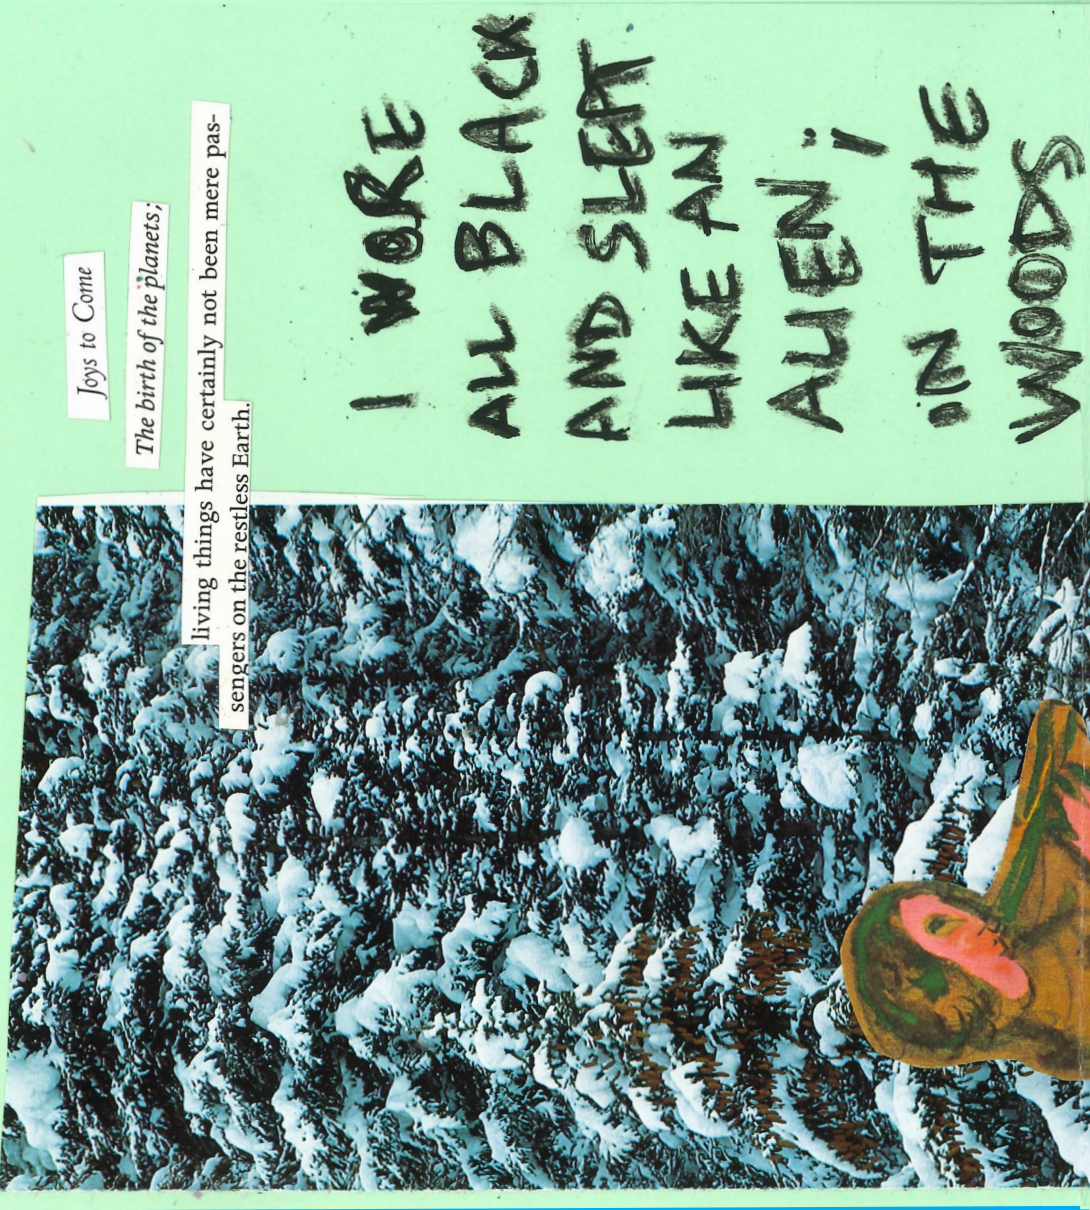 Joys to Come
The birth of the planets;
living things have certainly not been mere pas-
sengers on the restless Earth.
I WORE
ALL BLACK
AND SLEPT
LIKE AN
ALIEN ;
IN THE
WOODS